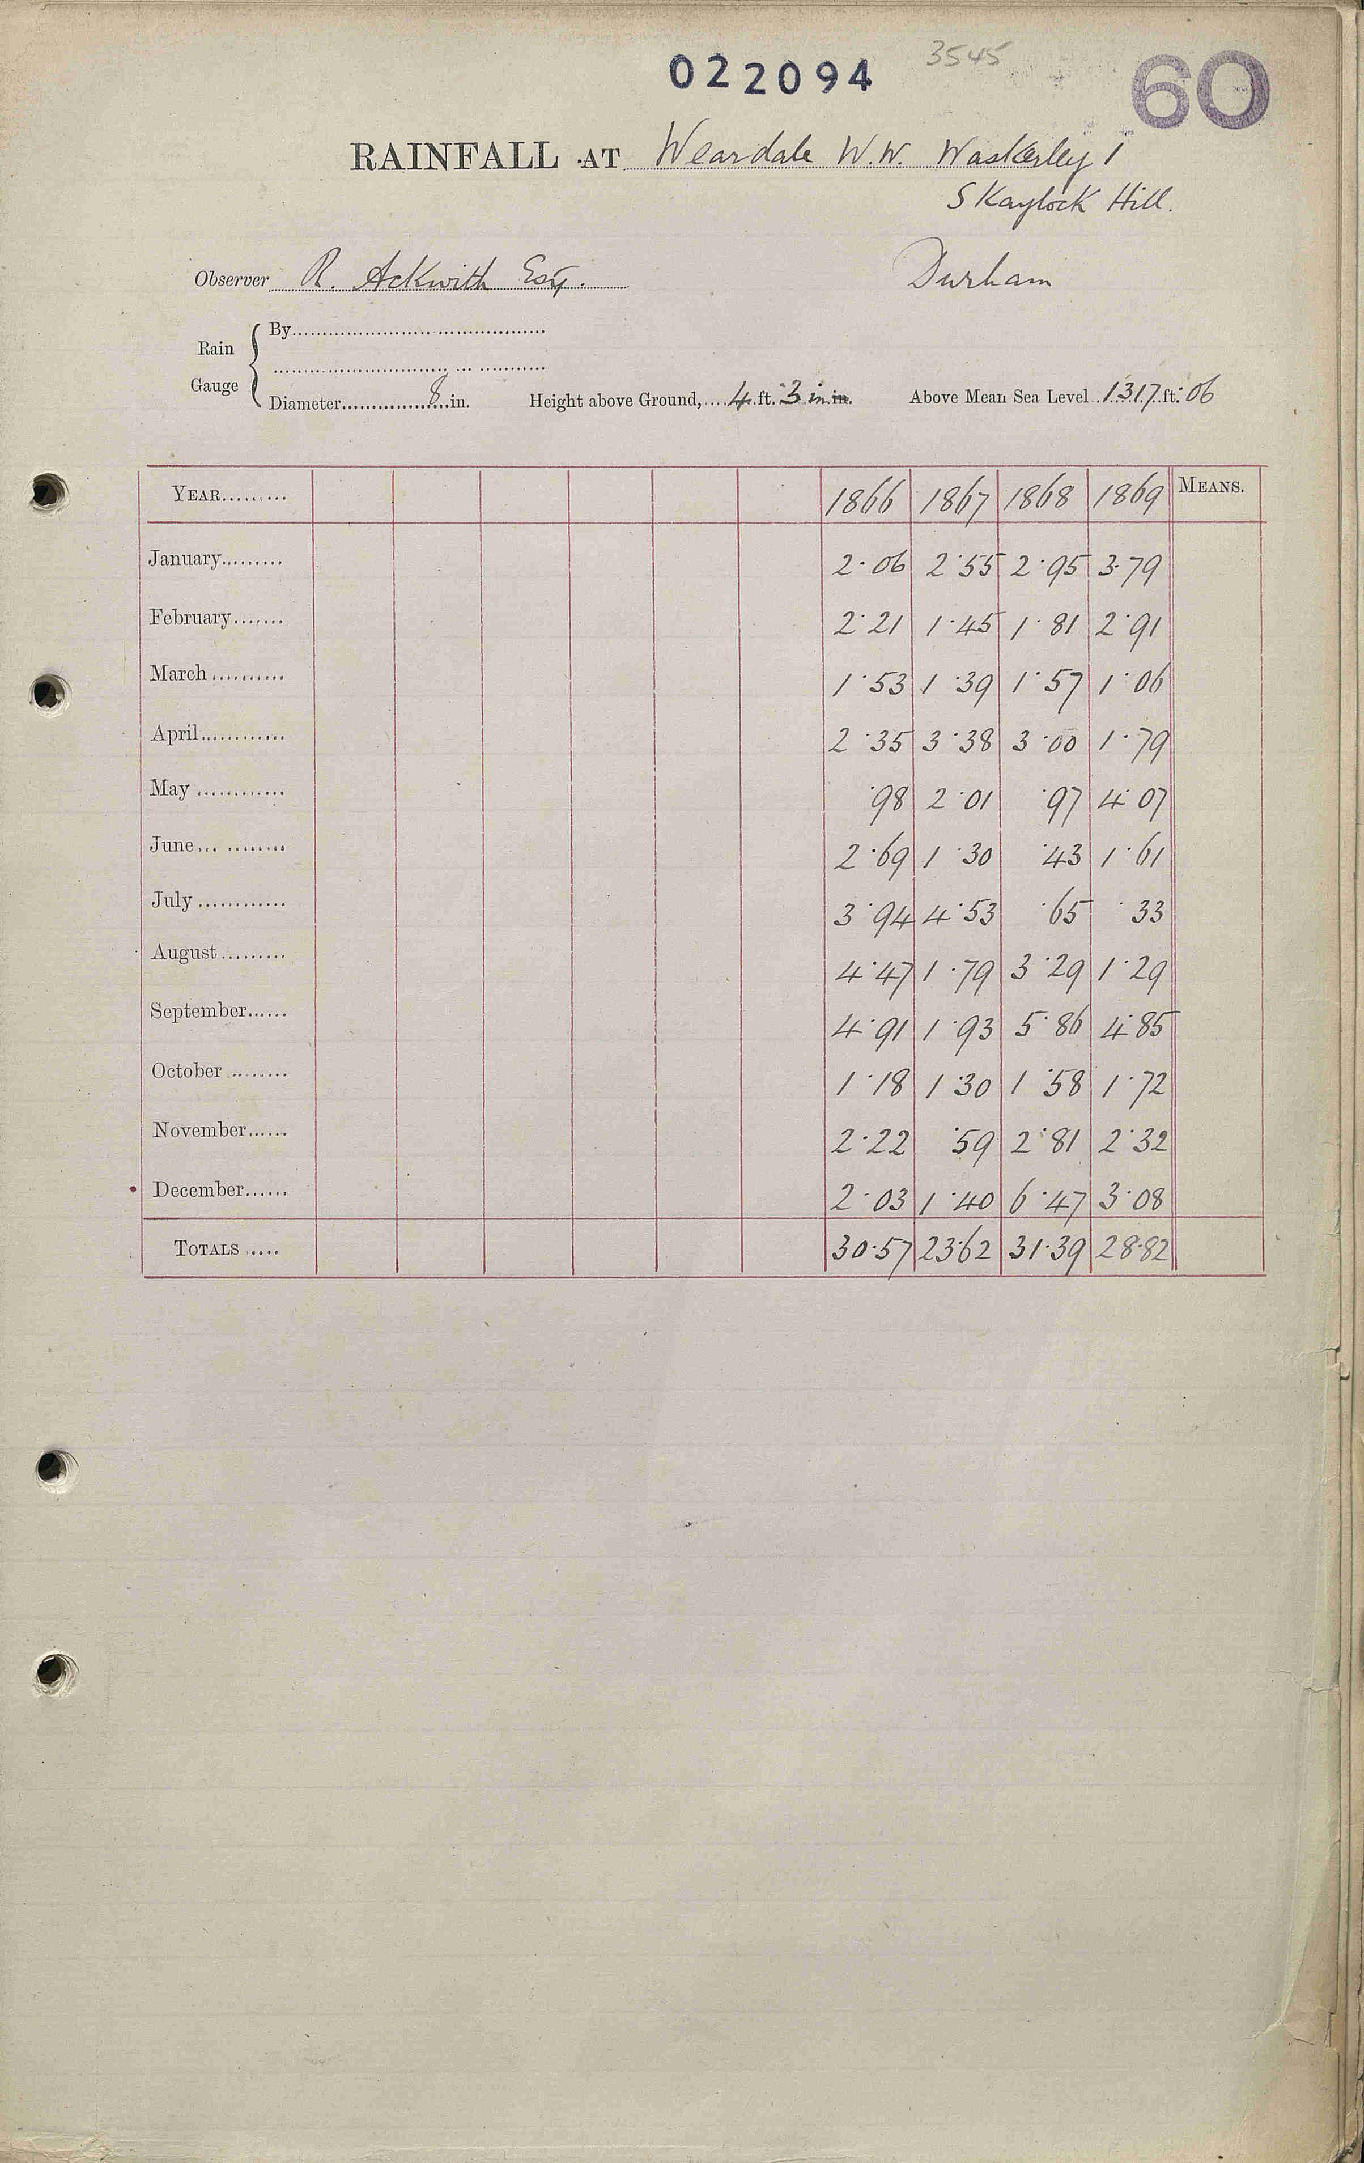 022094 3545 60
RAINFALL AT Weardale W.W. Waskerley 1
Skaylock Hill.
Observer R. Ackwith Esq. Durham
Rain Gauge { By
Diameter 8 in. Height above Ground, 4 ft. 3 in in. Above Mean Sea Level 1317 ft. 06
YEAR 1866 1867 1868 1869 MEANS.
January 2.06 2.55 2.95 3.79
February 2.21 1.45 1.81 2.91
March 1.53 1.39 1.57 1.06
April 2.35 3.38 3.00 1.79
May .98 2.01 .97 4.07
June 2.69 1.30 .43 1.61
July 3.94 4.53 .65 .33
August 4.47 1.79 3.29 1.29
September 4.91 1.93 5.86 4.85
October 1.18 1.30 1.58 1.72
November 2.22 .59 2.81 2.32
December 2.03 1.40 6.47 3.08
TOTALS 30.57 23.62 31.39 28.82